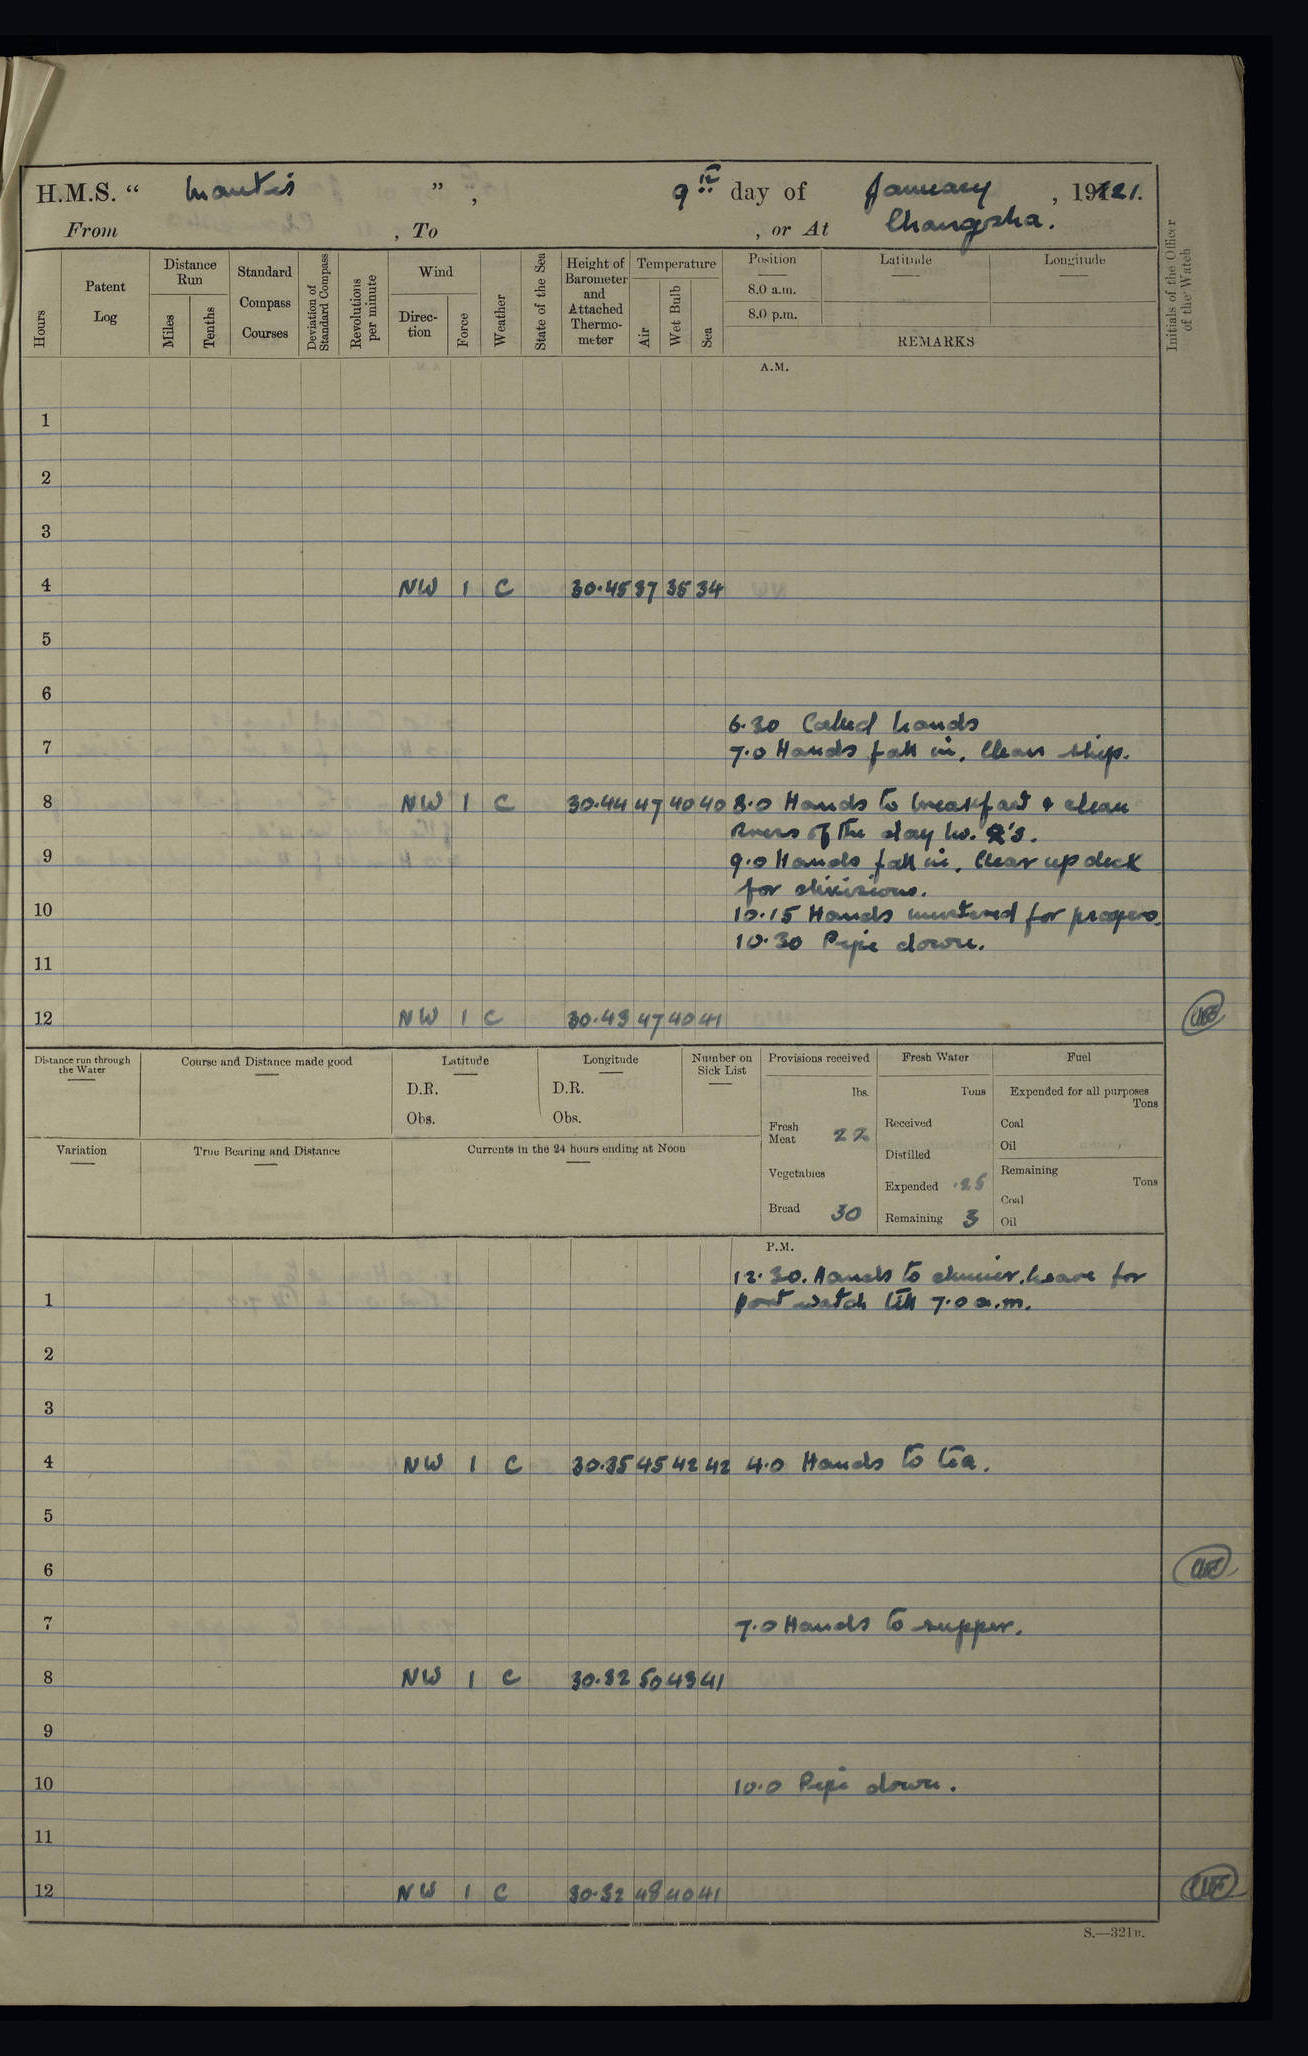 H.M.S. “ Mantis ”, 9th day of January, 1921.
From , To , or At Changsha.
Hours
Patent Log
Distance Run
Miles
Tenths
Standard Compass Courses
Deviation of Standard Compass
Revolutions per minute
Wind
Direc-tion
Force
Weather
State of the Sea
Height of Barometer and Attached Thermo-meter
Temperature
Air
Wet Bulb
Sea
Position
8.0 a.m.
8.0 p.m.
Latitude
Longitude
REMARKS
Initials of the Officer of the Watch
A.M.
1
2
3
4 NW 1 C 30.45 37 35 34
5
6
6.30 Called hands
7 7.0 Hands fall in. Clean ship.
8 NW 1 C 30.44 47 40 40 8.0 Hands to breakfast & clean
Rivers of the day No. 2's.
9 9.0 Hands fall in. Clear up deck
for divisions.
10 10.15 Hands mustered for prayers.
10.30 Pipe down.
11
12 NW 1 C 30.43 47 40 41
Distance run through the Water
Course and Distance made good
Latitude
D.R.
Obs.
Longitude
D.R.
Obs.
Number on Sick List
Provisions received
lbs.
Fresh Meat 22
Vegetables
Bread 30
Fresh Water
Tons
Received
Distilled
Expended .25
Remaining 3
Fuel
Expended for all purposes
Tons
Coal
Oil
Remaining
Tons
Coal
Oil
Variation
True Bearing and Distance
Currents in the 24 hours ending at Noon
P.M.
12.30. Hands to dinner. Leave for
1 port watch till 7.0 a.m.
2
3
4 NW 1 C 30.35 45 42 42 4.0 Hands to tea.
5
6
7 7.0 Hands to supper.
8 NW 1 C 30.32 50 43 41
9
10 10.0 Pipe down.
11
12 NW 1 C 30.32 48 40 41
S.—321B.